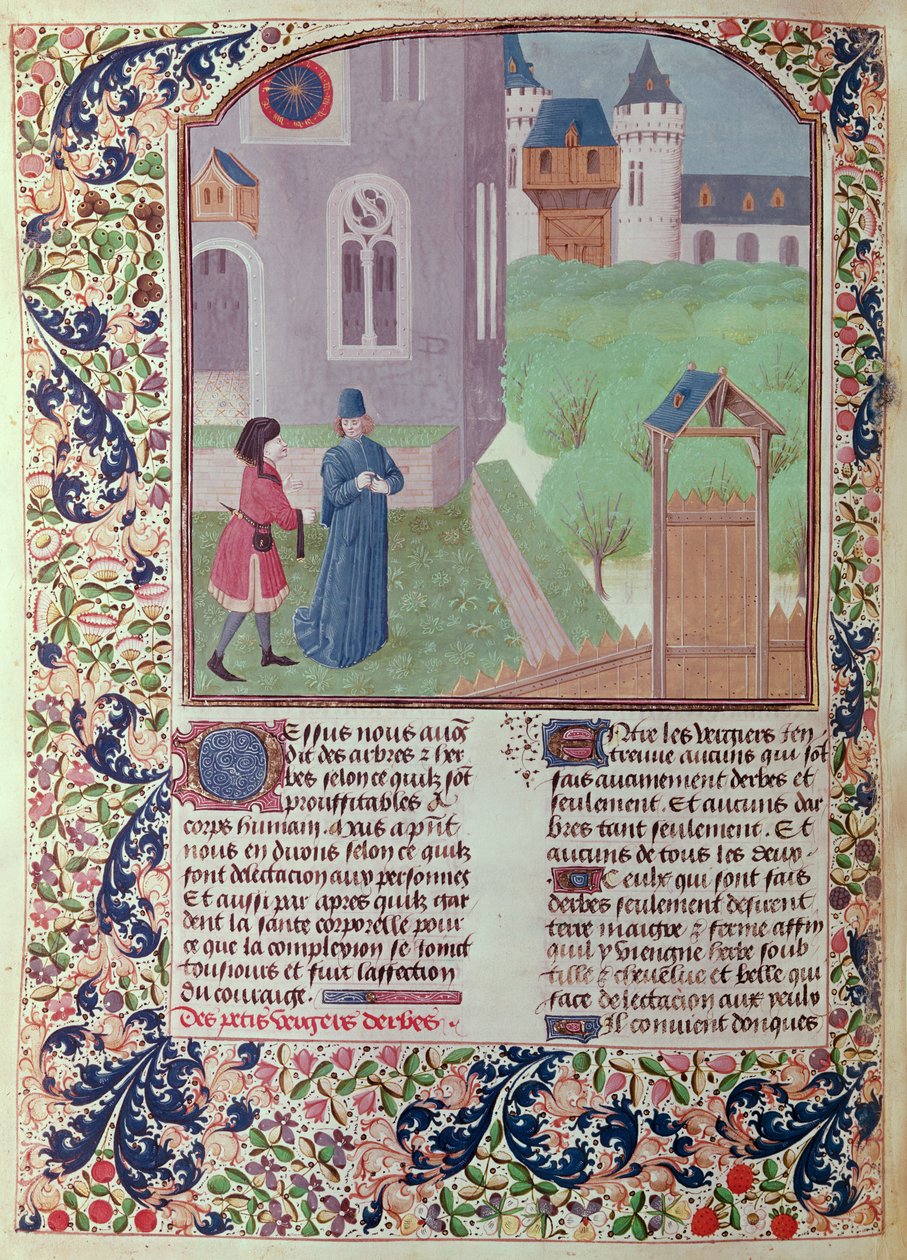 Dessus nous auōs
dit des arbres & her
bes selon ce quilz sōt
prouffitables a
corps humain. Mais a pn̄t
nous en dirons selon ce quilz
font delectacion aux personnes
Et aussi par apres quilz gar
dent la sante corporelle pour
ce que la complexion se ioinct
tousiours et suit laffection
du couraige.
Des petis vergiers derbes.
Entre les vergiers Jen
treuue aucuns qui sōt
fais aucunement derbes et
seulement. Et aucuns dar
bres tant seulement. Et
aucuns de tous les deux.
Ceulx qui sont fais
derbes seulement desirent
terre maigre & ferme affin
quil y viengne herbe soub
tille & cheuelue et belle qui
face delectacion aux yeulx
Il conuient donques